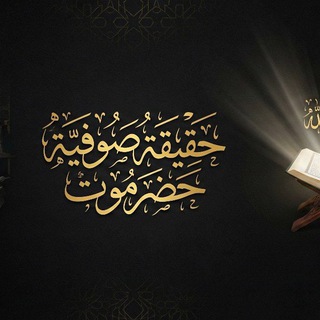 حَقِيْقَةُ صُوفِيَّةِ
حَضرَمُوتَ